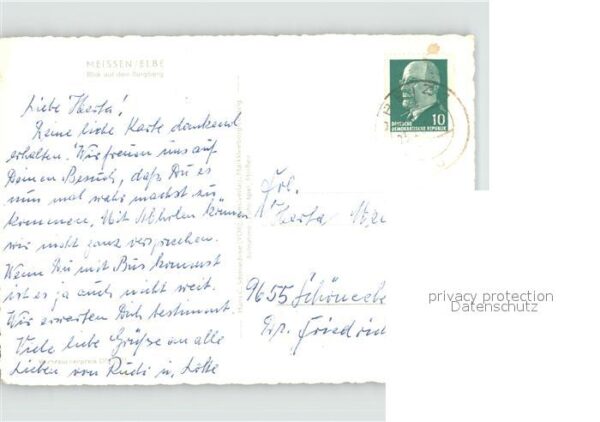 MEISSEN/ELBE
Blick auf den Burgberg
10
DEUTSCHE
DEMOKRATISCHE REPUBLIK
Liebe Herta!
Deine liebe Karte dankend
erhalten. Wir freuen uns auf
Deinen Besuch, daß Du es
nun mal wahr machst zu
kommen. Mit Abholen können
wir nicht ganz versprechen.
Wenn Du mit Bus kommst
ist es ja auch nicht weit.
Wir erwarten Dich bestimmt.
Viele liebe Grüße an alle
Lieben von Rudi u. Lotte
Frl.
Herta
9655 Schönecke
privacy protection
Datenschutz